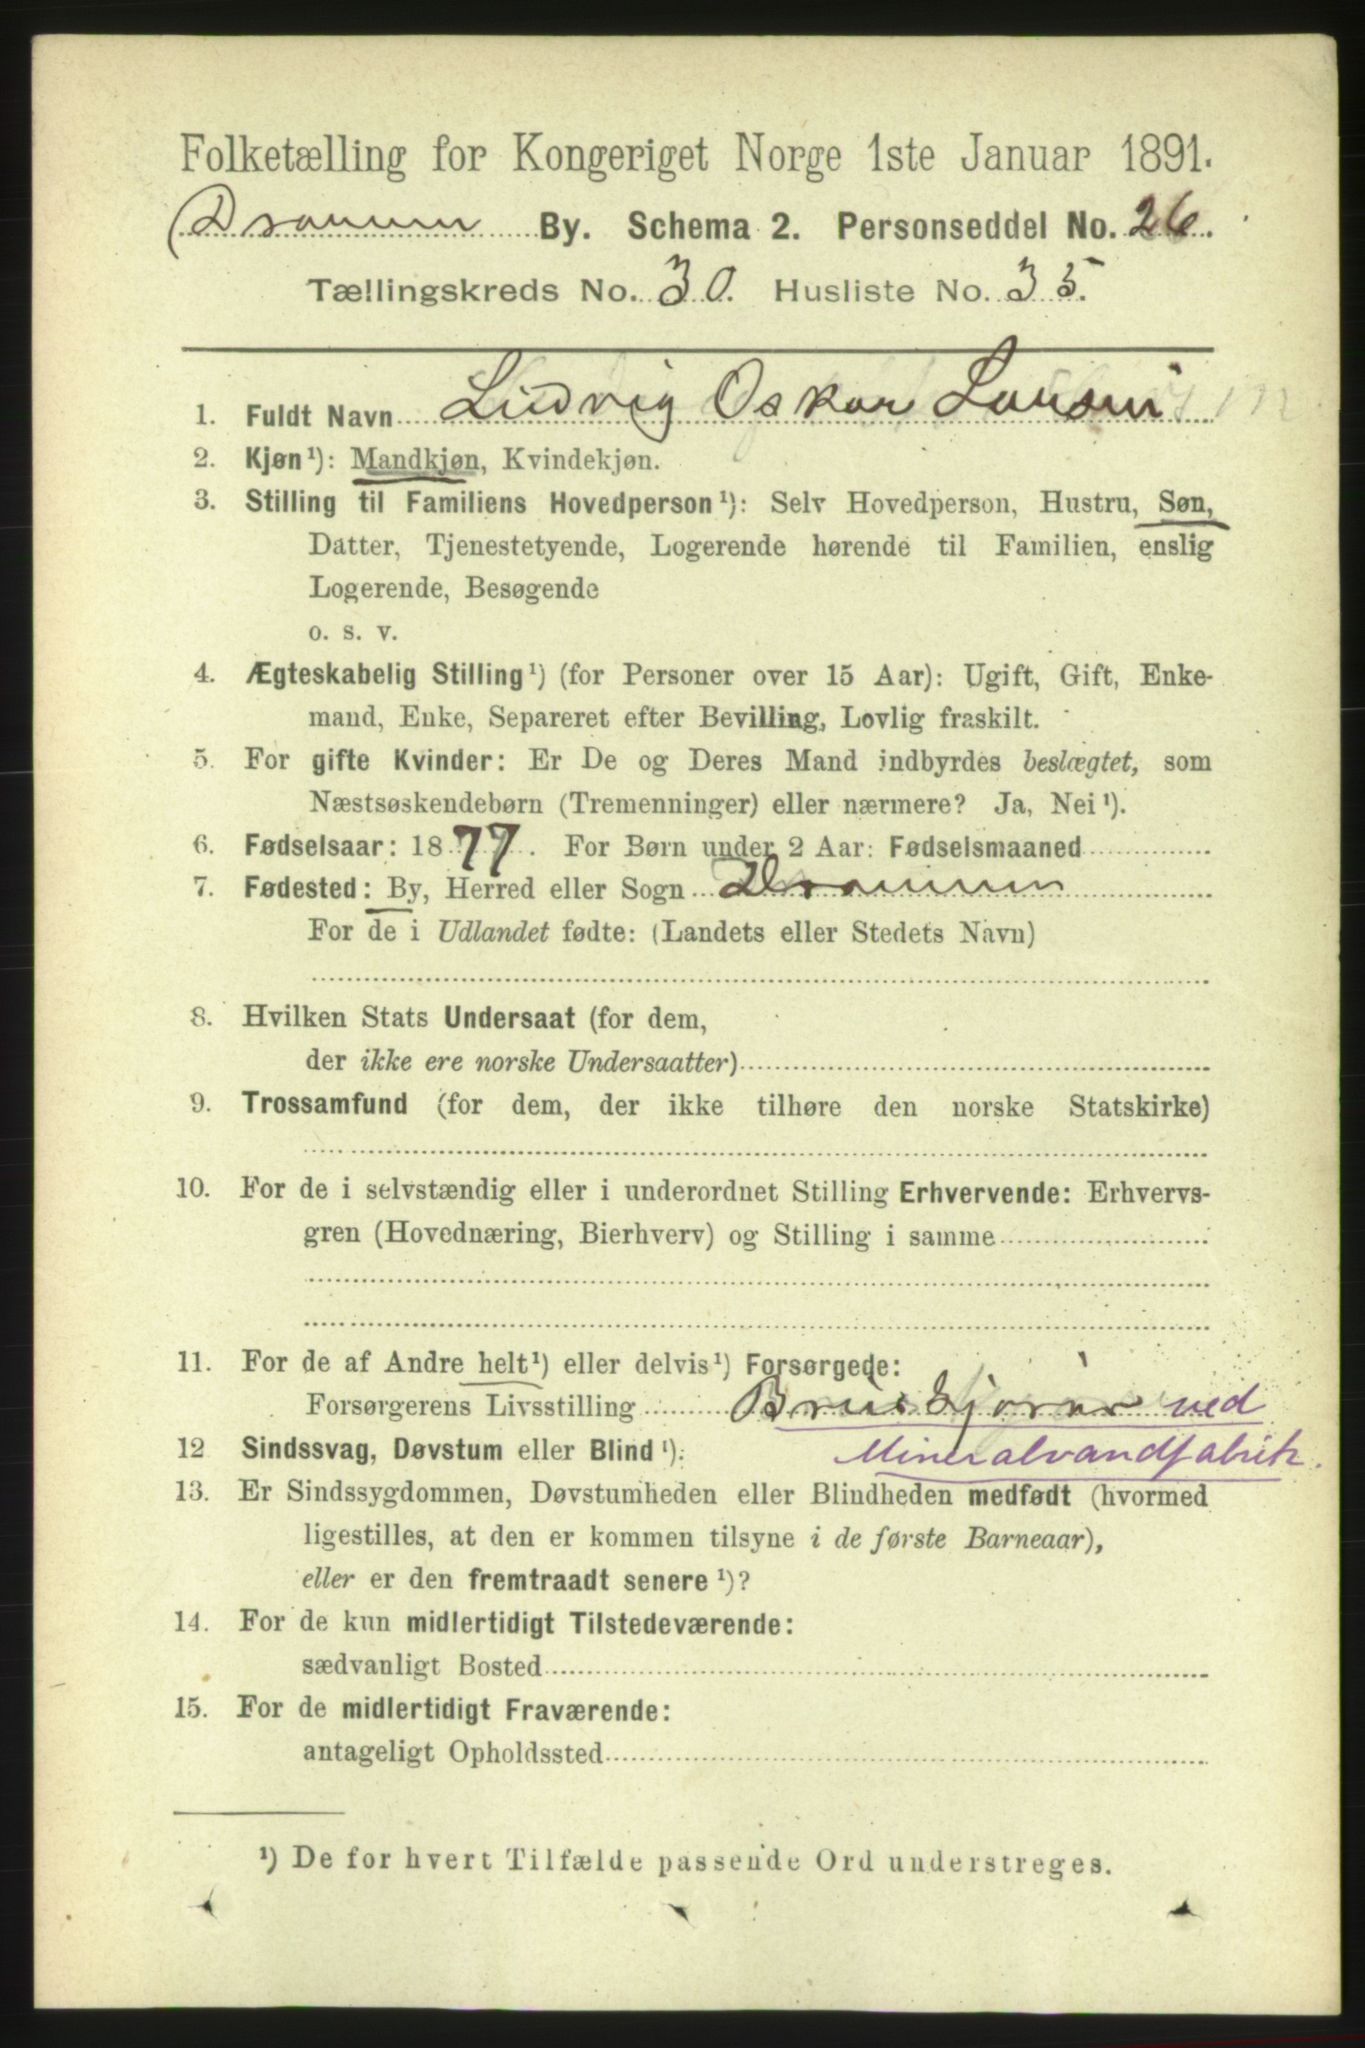 Folketælling for Kongeriget Norge 1ste Januar 1891.
Drammen By. Schema 2. Personseddel No. 26.
Tællingskreds No. 30. Husliste No. 35.
1. Fuldt Navn Ludvig Oskar Larsen
2. Kjøn¹): Mandkjøn, Kvindekjøn.
3. Stilling til Familiens Hovedperson¹): Selv Hovedperson, Hustru, Søn,
Datter, Tjenestetyende, Logerende hørende til Familien, enslig
Logerende, Besøgende
o. s. v.
4. Ægteskabelig Stilling¹) (for Personer over 15 Aar): Ugift, Gift, Enke-
mand, Enke, Separeret efter Bevilling, Lovlig fraskilt.
5. For gifte Kvinder: Er De og Deres Mand indbyrdes beslægtet, som
Næstsøskendebørn (Tremenninger) eller nærmere? Ja, Nei¹).
6. Fødselsaar: 1877. For Børn under 2 Aar: Fødselsmaaned
7. Fødested: By, Herred eller Sogn Drammen
For de i Udlandet fødte: (Landets eller Stedets Navn)
8. Hvilken Stats Undersaat (for dem,
der ikke ere norske Undersaatter)
9. Trossamfund (for dem, der ikke tilhøre den norske Statskirke)
10. For de i selvstændig eller i underordnet Stilling Erhvervende: Erhvervs-
gren (Hovednæring, Bierhverv) og Stilling i samme
11. For de af Andre helt¹) eller delvis¹) Forsørgede:
Forsørgerens Livsstilling Bruskjører ved
12 Sindssvag, Døvstum eller Blind¹): Mineralvandfabrik.
13. Er Sindssygdommen, Døvstumheden eller Blindheden medfødt (hvormed
ligestilles, at den er kommen tilsyne i de første Barneaar),
eller er den fremtraadt senere¹)?
14. For de kun midlertidigt Tilstedeværende:
sædvanligt Bosted
15. For de midlertidigt Fraværende:
antageligt Opholdssted
¹) De for hvert Tilfælde passende Ord understreges.